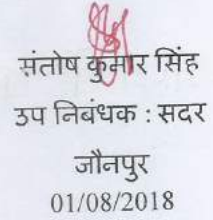 संतोष कुमार सिंह
उप निबंधक : सदर
जौनपुर
01/08/2018